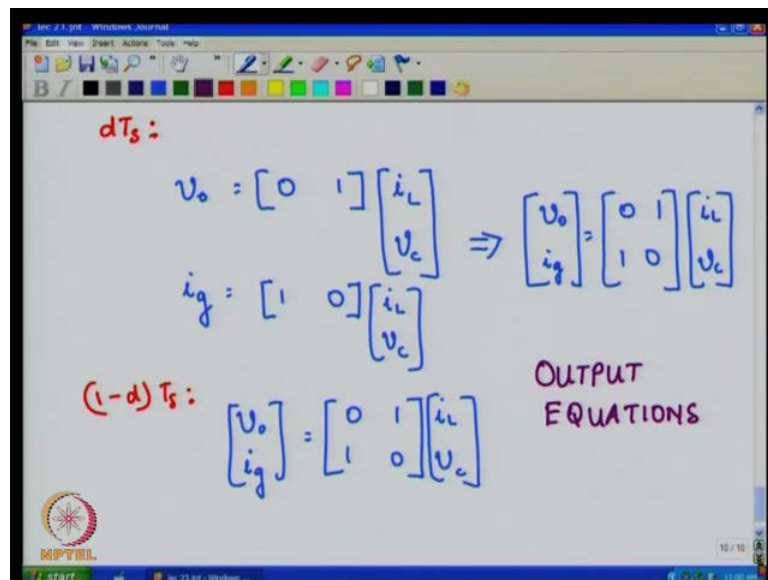 lec 23.jnt - Windows Journal
File Edit View Insert Actions Tools Help
B I
dTs :
v₀ = [0 1] [i_L v_c]
⇒ [v₀ i_g] = [0 1 1 0] [i_L v_c]
i_g = [1 0] [i_L v_c]
(1-d) Ts :
[v₀ i_g] = [0 1 1 0] [i_L v_c]
OUTPUT
EQUATIONS
NPTEL
10 / 10
start
lec 23.jnt - Windows ...